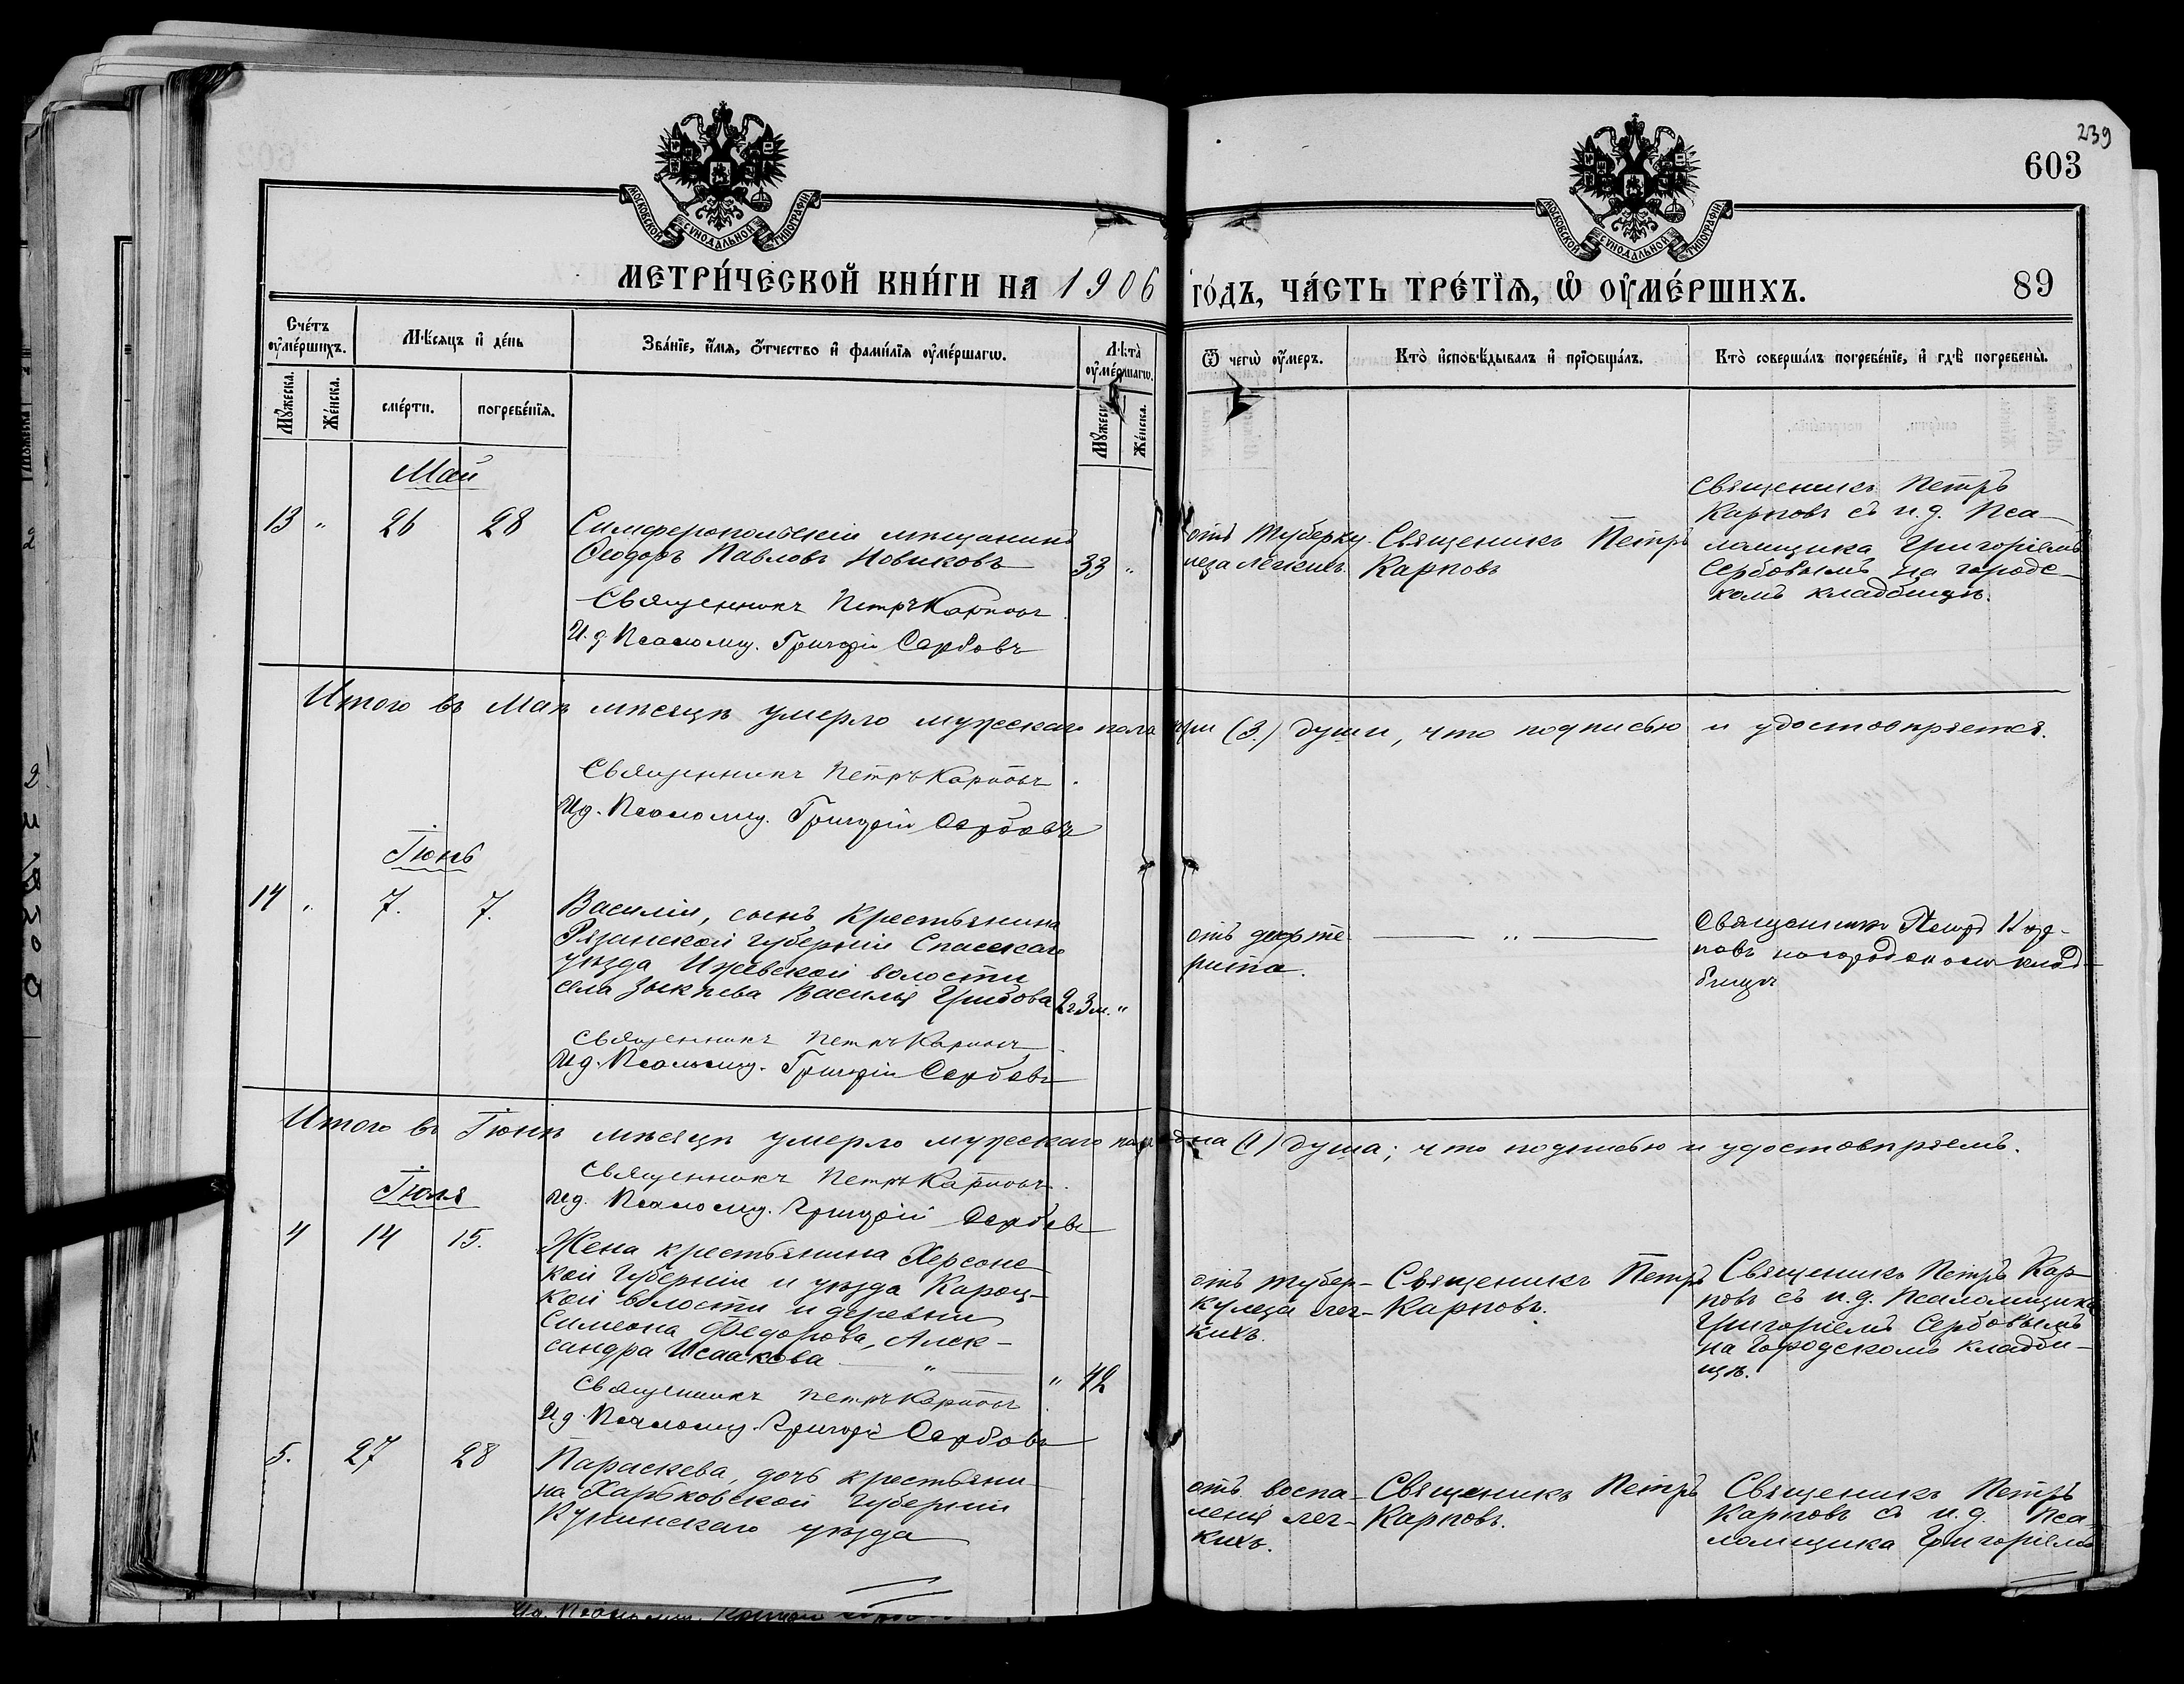 239
603
МОСКОВСКОЙ СѴНОДАЛЬНОЙ ТИПОГРАФІИ
МОСКОВСКОЙ СѴНОДАЛЬНОЙ ТИПОГРАФІИ
МЕТРИ́ЧЕСКОЙ КНИ́ГИ НА 1906 ГО́ДЪ, ЧА́СТЬ ТРЕ́ТЇѦ, Ѡ҆ ОУ҆МЕ́РШИХЪ.
89
Сче́тъ оу҆ме́ршихъ.
Мѣ́сяцъ и҆ де́нь
Зва́нїе, и҆́мя, ѻ҆́тчество и҆ фами́лїя оу҆ме́ршагѡ.
Лѣ́та̀ оу҆ме́ршагѡ.
Ѿ чегѡ̀ оу҆́меръ.
Кто̀ и҆сповѣ́дывалъ и҆ прїѡбща́лъ.
Кто̀ соверша́лъ погребе́нїе, и҆ гдѣ̀ погребены̀.
Мꙋ́жеска.
Же́нска.
сме́рти.
погребе́нїя.
Мꙋ́жеск.
Же́нска.
Май
13 " 26 28
Симферопольскій мѣщанинъ
Ѳеодоръ Павловъ Новиковъ
33 "
Священникъ Петръ Карповъ
И.д. Псаломщ. Григорій Сербовъ
отъ туберку-
леза лёгкихъ.
Священикъ Петръ
Карповъ
Священикъ Петръ
Карповъ съ и.д. Пса-
ломщика Григоріемъ
Сербовымъ на городс-
комъ кладбищѣ.
Итого въ Маѣ мѣсяцѣ умерло мужескаго пола три (3.) души, что подписью и удостовѣряется.
Священникъ Петръ Карповъ.
Ид. Псаломщ. Григорій Сербовъ
Іюнь
14 " 7. 7.
Василій, сынъ крестьянина
Рязанской губерніи Спасскаго
уѣзда Ижевской волости
села Зыкѣева Василія Грибова
2г 3м. "
Священникъ Петръ Карповъ
Ид. Псаломщ. Григорій Сербовъ
отъ дифте-
рита.
"
Священникъ Петръ Кар-
повъ на городскомъ клад-
бищѣ
Итого въ Іюнѣ мѣсяцѣ умерло мужескаго пола одна (1) душа; что подписью и удостовѣряемъ.
Священникъ Петръ Карповъ.
Ид. Псаломщ. Григорій Сербовъ
Іюля
4 14 15.
Жена крестьянина Херсонс-
кой губерніи и уѣзда Кароц-
кой волости и деревни
Симеона Федорова, Алек-
сандра Исаакова "
" 42
Священникъ Петръ Карповъ
Ид. Псаломщ. Григорій Сербовъ
отъ тубер-
кулеза лег-
кихъ.
Священикъ Петръ
Карповъ.
Священикъ Петръ Кар-
повъ съ и.д. Псаломщика
Григоріемъ Сербовымъ
на Городскомъ кладби-
щѣ.
5. 27 28
Параскева, дочь крестьяни-
на Харьковской губерніи
Купинскаго уѣзда
отъ воспа-
ленія лег-
кихъ.
Священикъ Петръ
Карповъ.
Священикъ Петръ
Карповъ съ и.д. Пса-
ломщика Григоріемъ